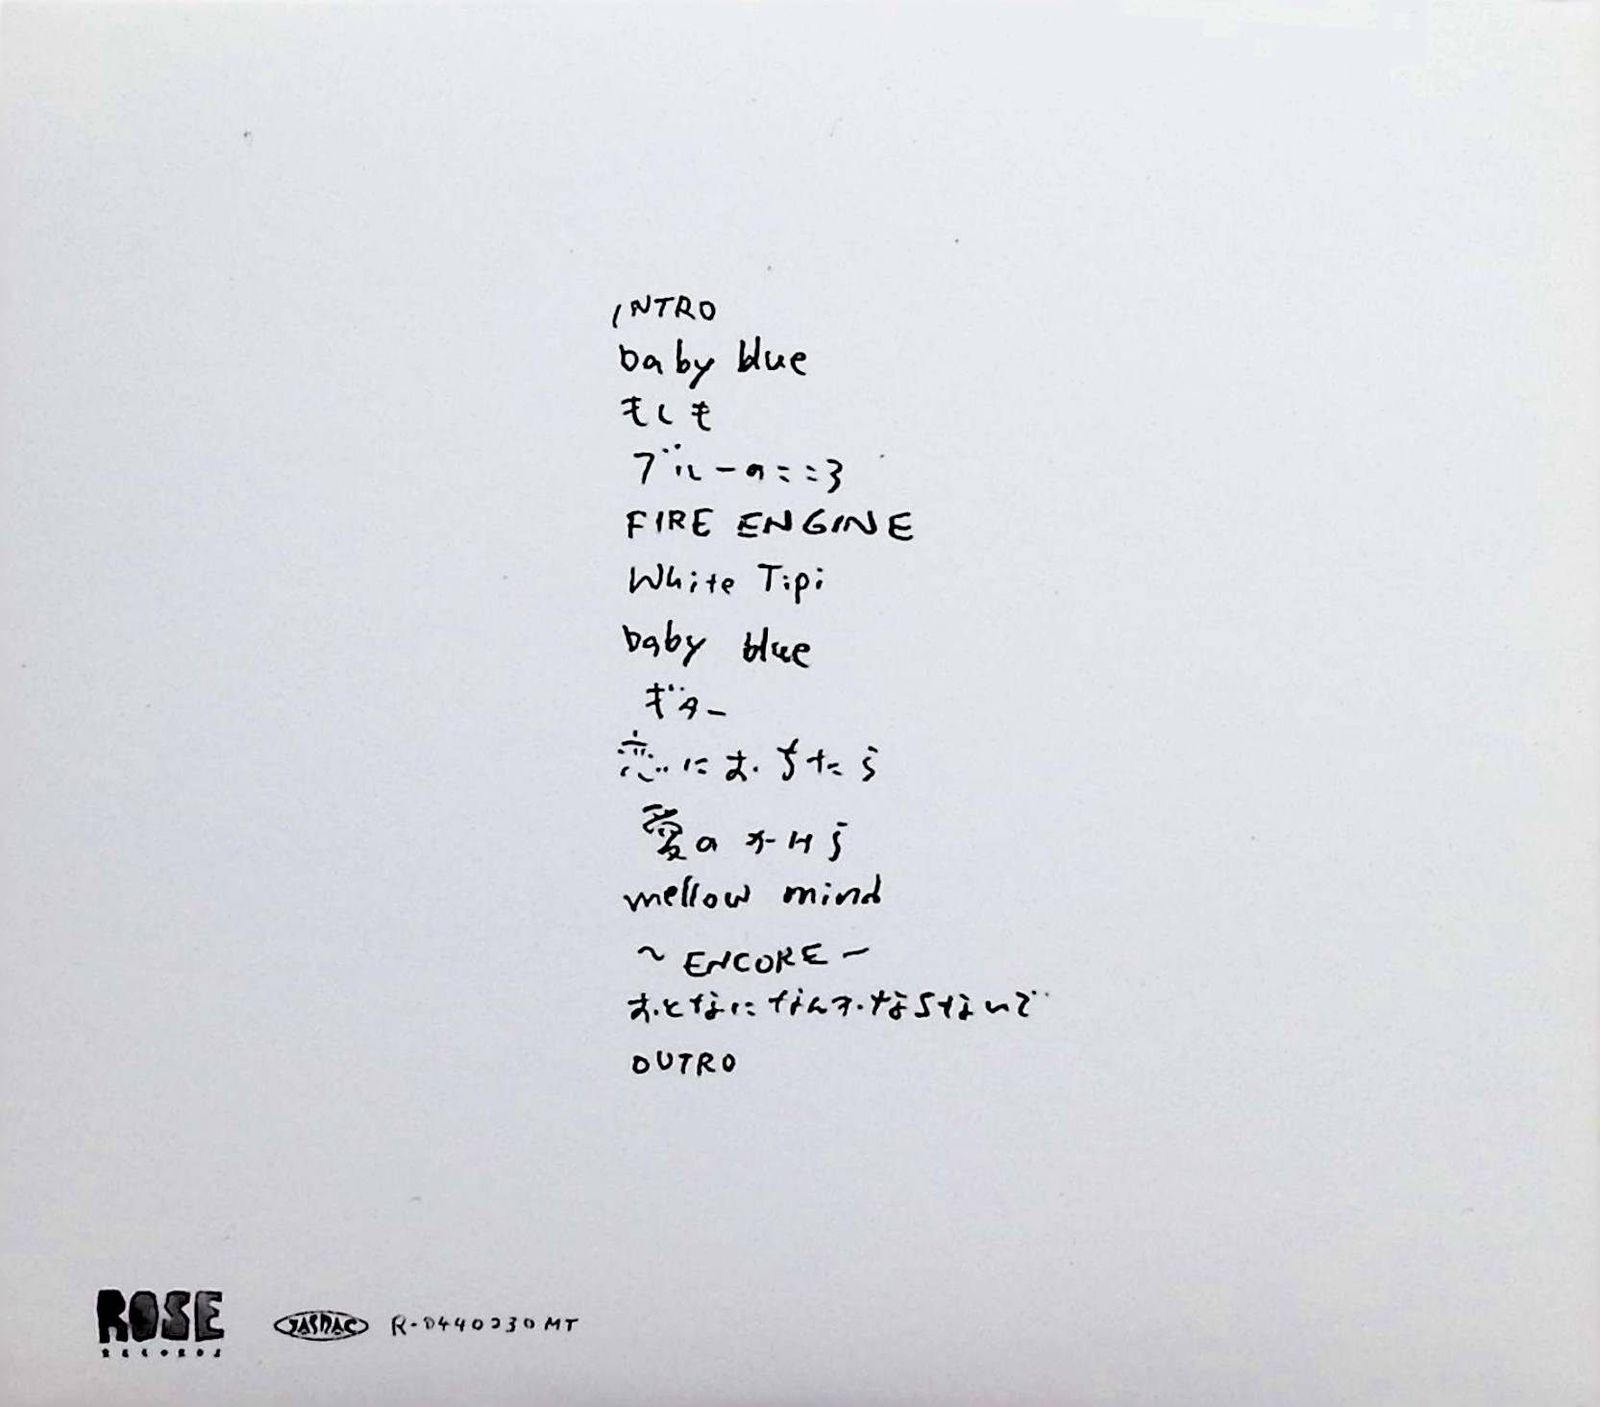 INTRO
baby blue
もしも
ブルーのこころ
FIRE ENGINE
White Tipi
baby blue
ギター
恋におちたら
愛のかけら
mellow mind
~ ENCORE ~
おとなになんかならないで
OUTRO
ROSE
RECORDS
JASRAC R-0440230MT